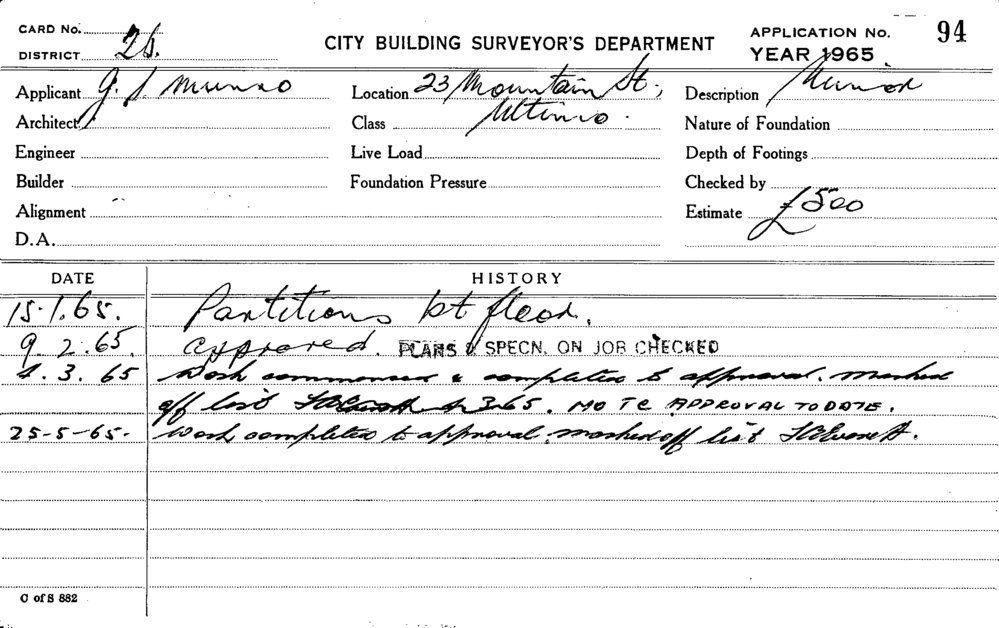 CARD No.
DISTRICT 2S.
CITY BUILDING SURVEYOR'S DEPARTMENT
APPLICATION No. 94
YEAR 1965
Applicant G. J. Munro
Location 23 Mountain St.,
Description Minor
Architect
Class Ultimo.
Nature of Foundation
Engineer
Live Load
Depth of Footings
Builder
Foundation Pressure
Checked by
Alignment
Estimate £500
D.A.
DATE HISTORY
15.1.65. Partitions 1st floor.
9.2.65. Approved. PLANS & SPECN. ON JOB CHECKED
4.3.65 Work commenced & completed to approval. Marked
off list 4.3.65. NO T C APPROVAL TO DATE.
25-5-65- Work completed to approval. marked off list
C of S 882